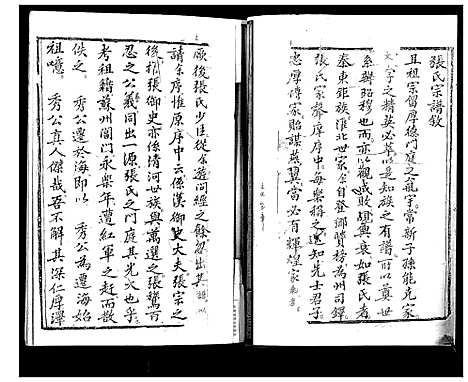 張氏宗譜敘
且祖宗留厚德門庭之龍宇常新子孫能克家
文字之精英必萃以是知族之有譜所以奠世
系辨昭穆也而亦以觀盛興衰如張氏者
秦東鉅族淮北世家余自登鄉賢榜為州司鐸
張氏家聲庠序中每樂稱之遂知先士君子
忠厚傳家貽謀燕翼當必有輝煌家
厥後張氏少臣從余遊問經之餘忽出其譜以
請余序惟原序中云係漢御史大夫張宗之
後祖張御史亦係清河世族與萬選之張鷟百
忍之公義同出一源張氏之門庭其光大也乎
考祖籍蘇州閶門永樂年遭紅軍之赶而散
佚之 秀公遷於海即以 秀公為遷海始
祖噫 秀公真人傑哉吾不解其深仁厚澤